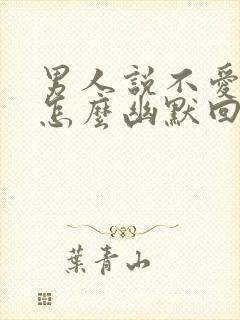 男人說不愛
怎麼幽默回
葉青山